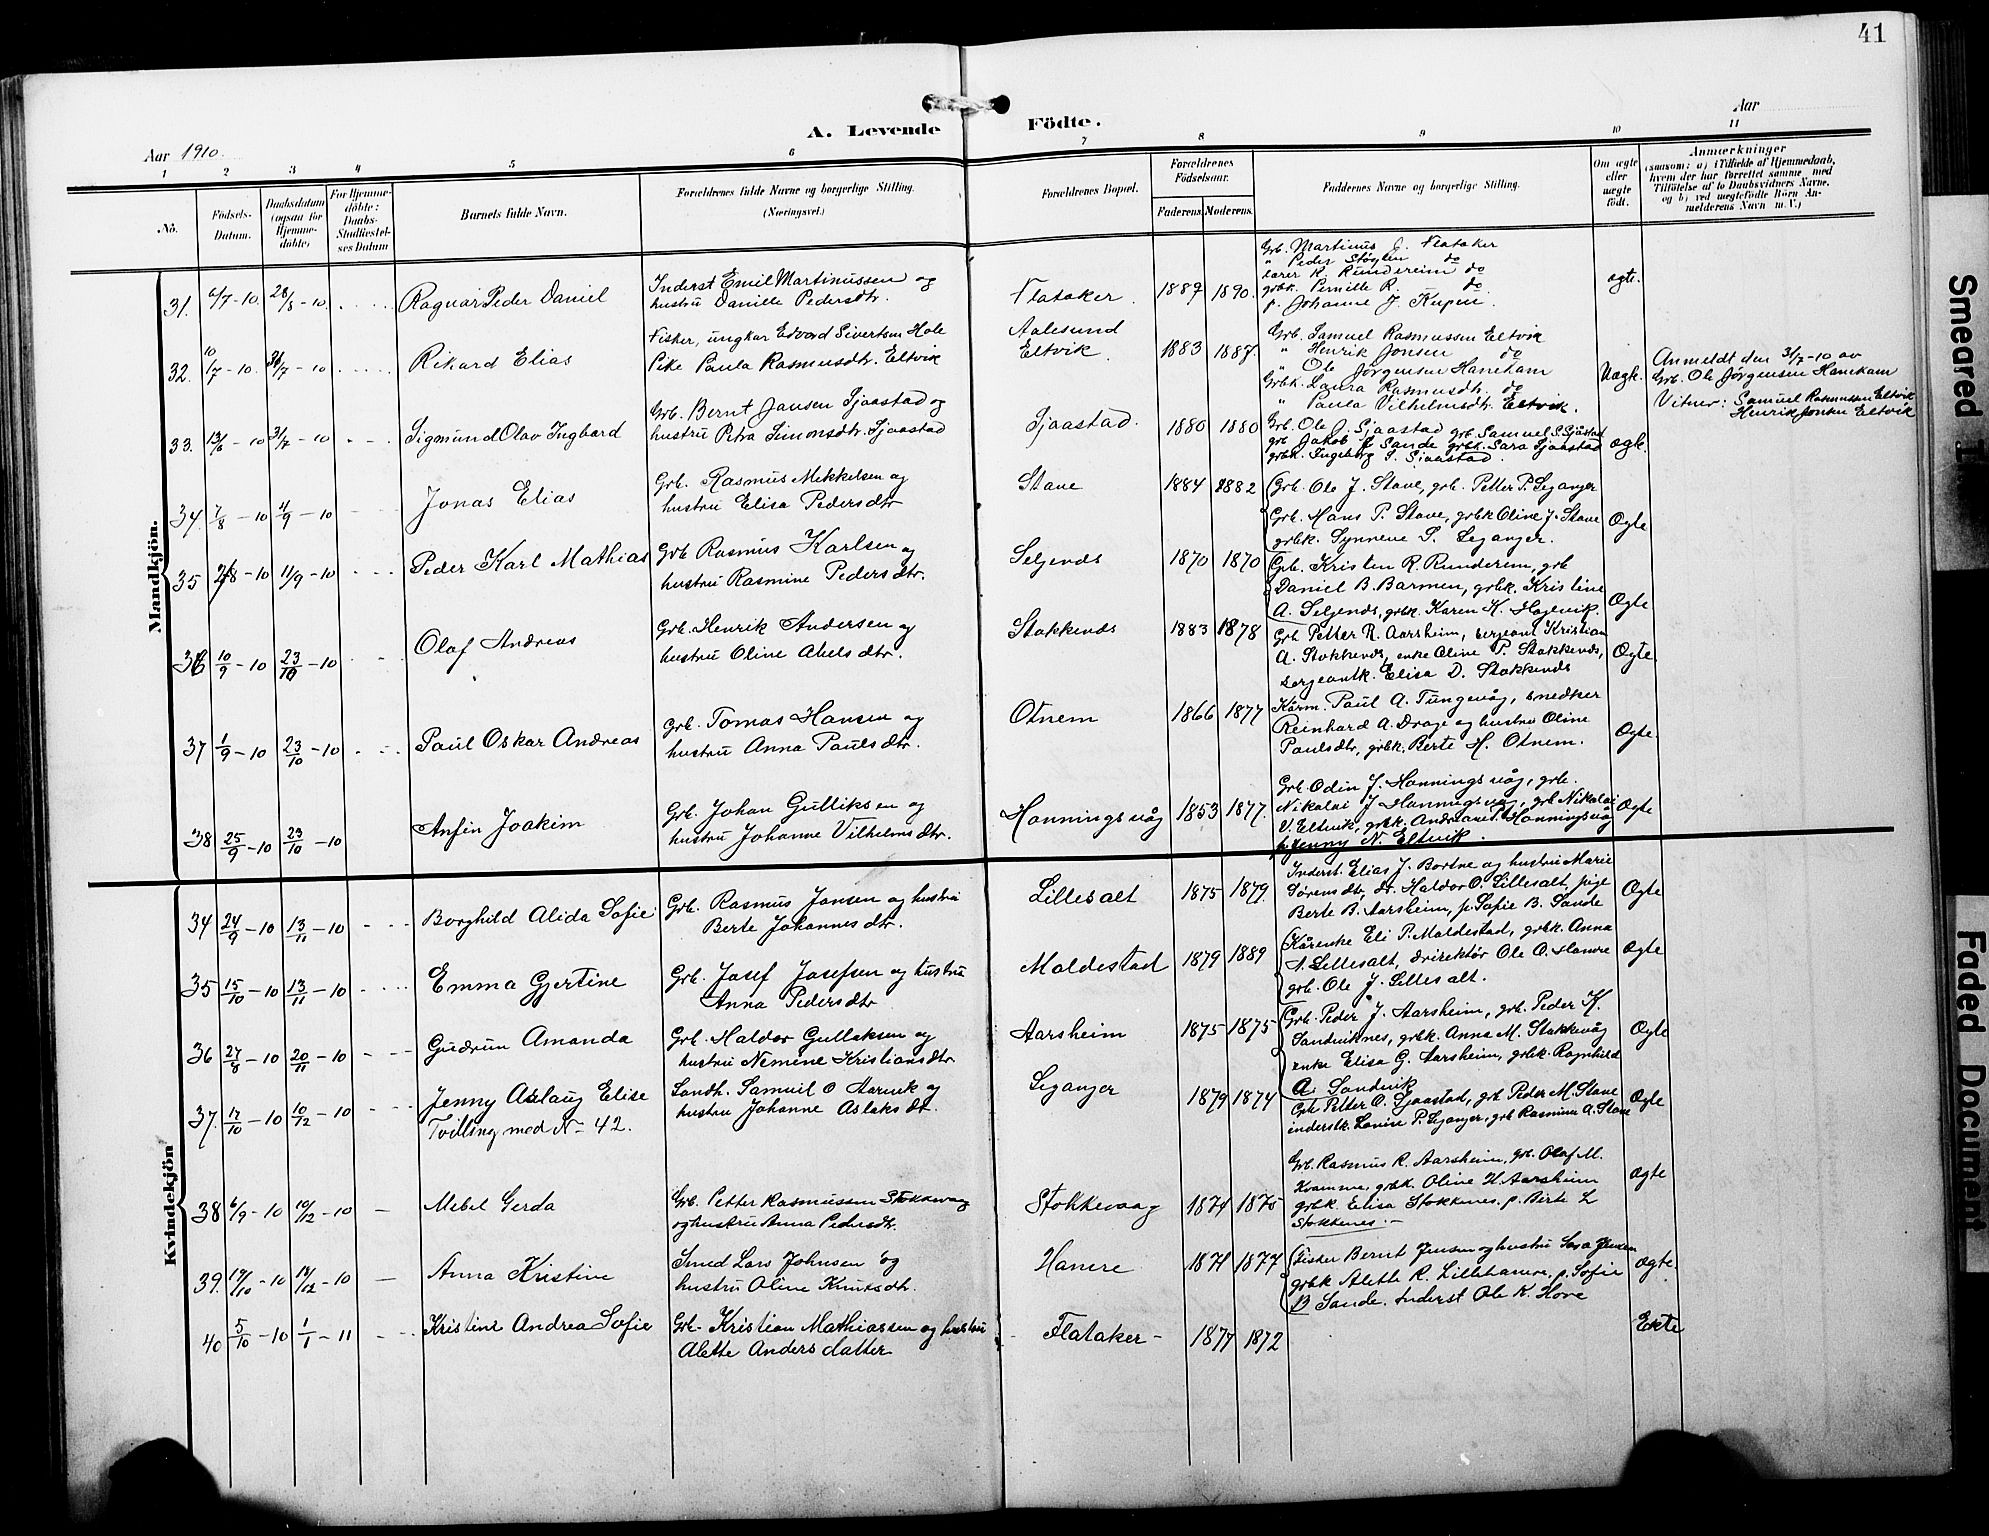 41
A. Levende Födte.
Aar 1910.
Aar
1 2 3 4 5 6 7 8 9 10 11
Nö.
Födsels-Datum.
Daabsdatum (ogsaa for Hjemme-döbte)
For Hjemme-döbte: Daabs-Stadfæstel-ses Datum
Barnets fulde Navn.
Forældrenes fulde Navne og borgerlige Stilling. (Næringsvei.)
Forældrenes Bopæl.
Forældrenes Födselsaar.
Faderens. Moderens.
Faddernes Navne og borgerlige Stilling.
Om ægte eller uægte födt.
Anmærkninger
(saasom: a) i Tilfælde af Hjemmedaab, hvem der har forrettet samme, med Tilföielse af to Daabsvidners Navne, og b) ved uægtefödte Börn An-melderens Navn m. V.)
Mandkjön.
31. 6/7-10. 28/8-10. Ragnar Peder Daniel
Inderst Emil Martinussen og
hustru Danille Pedersdtr.
Flataker. 1889 1890.
Grb. Martinus J. Flataker
" Peder Støylen do
Lærer R. Rundereim do
grbk. Pernille R. do
p. Johanne J. Kupen.
ægte.
32. 10/7-10. 31/7-10 Rikard Elias
Fisker, ungkar Edvard Sivertsen Hole
Pike Paula Rasmusdtr. Eltvik
Aalesund
Eltvik. 1883 1887.
Grb. Samuel Rasmussen Eltvik
" Henrik Jonsen do
" Ole Jörgensen Hanekam
Grbk. Laura Rasmusdtr. do
" Paula Vilhelmsdtr. Eltvik.
Uægte.
Anmeldt den 31/7-10 av
Grb. Ole Jørgensen Hanekam
Vitner: Samuel Rasmussen Eltvik
Henrik Jonsen Eltvik
33. 13/6-10 31/7-10 Sigmund Olav Ingbard
Grb. Bernt Jansen Sjaastad og
hustru Petra Simonsdtr. Sjaastad
Sjaastad. 1880 1880
Grb. Ole J. Sjaastad grb. Samuel S. Sjåstad
grb. Jakob P. Sande grbk. Sara Sjaastad
grbk. Ingeborg S. Sjaastad.
ægte.
34 7/8-10 4/9-10 Jonas Elias
Grb. Rasmus Mekkelsen og
hustru Elisa Pedersdtr
Stave 1884 1882
Grb. Ole J. Stave, grb. Petter P. Leganger
Grb. Hans P. Stave, grbk Oline J. Stave
grbk. Synneve S. Leganger.
Ægte
35 2/8-10 11/9-10 Peder Karl Mathias
Grb Rasmus Karlsen og
hustru Rasmine Pedersdtr.
Seljends 1870 1870
Grb. Kristen R. Runderem, grb
Daniel B. Barmen, grbk. Kristine
A. Seljends, grbk. Karen K. Hagevik.
Ægte
36 10/9-10 23/10-10 Olaf Andreas
Grb. Henrik Andersen og
hustru Oline Abelsdtr.
Stokkends 1883 1878
Grb Petter R. Aarsheim, sergeant Kristian
A. Stokkends, enke Oline P. Stokkends,
sergeantk. Elisa D. Stokkends
Ægte.
37 1/9-10 23/10-10 Paul Oskar Andreas
Grb. Tomas Hansen og
hustru Anna Paulsdtr.
Otnem 1866 1877
Kårm. Paul A. Tungevåg, snedker
Reinhard A. Drage og hustru Oline
Paulsdtr, grbk. Berte H. Otnem.
Ægte.
38 25/9-10 23/10-10 Anfin Joakim
Grb. Johan Gulliksen og
hustru Johanne Vilhelmsdtr.
Honningsvåg 1853 1877.
Grb. Odin J. Honningsvåg, grb.
Nikolai J Honningsvåg, grb Nikolai
V. Eltvik, grbk. Andreane Honningsvåg
p. Jenny N. Eltvik.
Ægte
Kvindekjön
34 24/9-10 13/11-10 Borghild Alida Sofie
Grb. Rasmus Jansen og hustru
Berte Johannesdtr.
Lillesalt 1875 1879.
Inderst. Elias J. Bortne og hustru Marie
Sørensdtr, dr. Haldor O. Lillesalt, pige
Berte B. Aarsheim, p. Sofie B. Sande
Ægte
35 15/10-10 13/11-10 Emma Gjertine
Grb. Josef Josefsen og hustru
Anna Pedersdtr
Maldestad 1879 1889
Kårenke Eli P. Maldestad, grbk. Anna
A. Lillesalt, direktör Ole O. Hamre
grb. Ole J. Lillesalt.
Ægte
36 27/8-10 20/11-10 Gudrun Amanda
Grb. Haldor Gullaksen og
hustru Nemine Kristiansdtr
Aarsheim 1875 1875
Grb. Peder J. Aarsheim, grb. Peder K.
Sandviknes, grbk. Anna M. Stokkevåg
enke Elisa G. Aarsheim, grbk. Ragnhild
A. Sandvik
Ægte
37. 12/10-10 10/12-10 Jenny Aslaug Elise
Tvilling med N- 42.
Landh. Samuel O Hervik og
hustru Johanne Aslaksdt.
Leganger 1879 1874
Grb Petter O. Sjaastad, grb Peder M. Stave
inderstk. Lovise P. Leganger, grb Rasmine A. Stave
Ægte
38 6/9-10 10/12-10 Mebel Gerda
Grb. Petter Rasmussen Stokkevaag
og hustru Anna Pedersdtr.
Stokkevaag 1874 1875
Grb. Rasmus R. Aarsheim, grb. Olaf M.
Kvamme, grbk. Oline H. Aarsheim
grbk. Elisa Stokknes. p. Berte L
Stokknes.
Ægte
39. 19/10-10 18/12-10 Anna Kristine
Smed Lars Johnsen og
hustru Oline Knutsdtr.
Hamre 1871 1877
Fisker Bernt Jensen og hustru Sara Jensen
grbk Alette R. Lillehamre, p. Sofie
B Sande. Inderst Ole K. Hove
ægte.
40 5/10-10 1/1-11 Kristine Andrea Sofie
Grb. Kristian Mathiassen og hustru
Alette Andersdatter
Flataker- 1877 1872
Ekte
Smeared
Faded Document